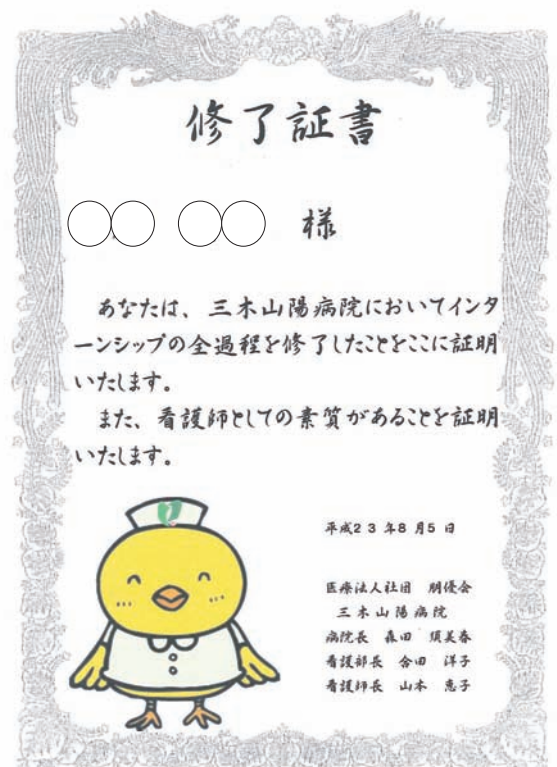 修了証書
○○ ○○ 様
あなたは、三木山陽病院においてインタ
ーンシップの全過程を修了したことをここに証明
いたします。
また、看護師としての素質があることを証明
いたします。
平成23年8月5日
医療法人社団 朋優会
三木山陽病院
病院長 森田 須美春
看護部長 合田 洋子
看護師長 山本 恵子